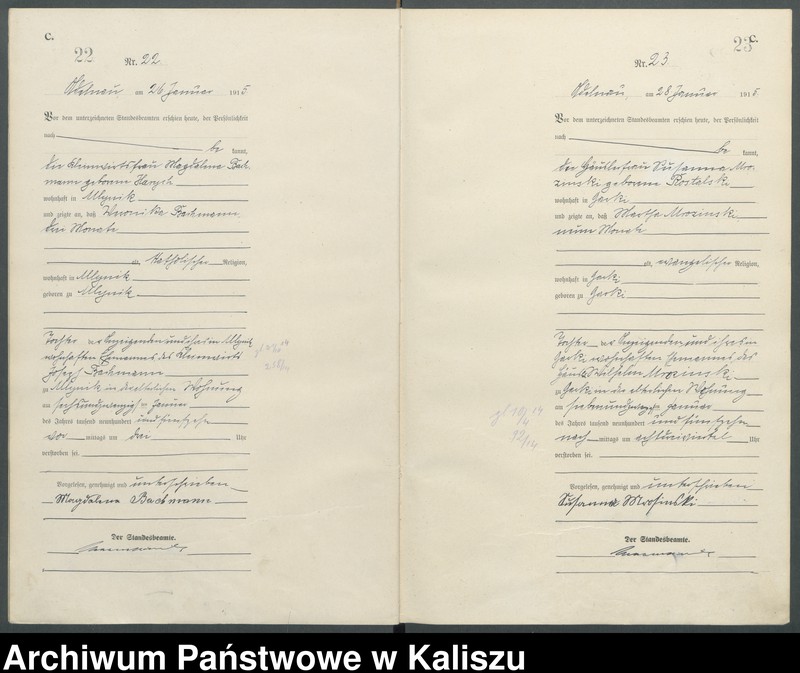 C.
22
Nr. 22
am 26 Januar 1915
Vor dem unterzeichneten Standesbeamten erschien heute, der Persönlichkeit
nach
be kannt,
die Magdalena Bach-
mann geborene
wohnhaft in Mlynik
und zeigte an, daß Veronika Bachmann
drei Monate
alt, katholischer Religion,
wohnhaft in Mlynik
geboren zu Mlynik
Tochter der Anzeigenden und ihres in Mlynik
wohnhaften Ehemannes des
Joseph Bachmann
zu Mlynik in der elterlichen Wohnung
am sechsundzwanzigsten Januar
des Jahres tausend neunhundert und fünfzehn
vor mittags um drei Uhr
verstorben sei.
Vorgelesen, genehmigt und unterschrieben
Magdalena Bachmann
Der Standesbeamte.
C.
23
Nr. 23
am 28 Januar 1915
Vor dem unterzeichneten Standesbeamten erschien heute, der Persönlichkeit
nach
be kannt,
die Häuslerfrau Susanna Mro-
zinski geborene Rostalski
wohnhaft in Garki
und zeigte an, daß Martha Mrozinski
neun Monate
alt, evangelischer Religion,
wohnhaft in Garki
geboren zu Garki
Tochter der Anzeigenden und ihres in
Garki wohnhaften Ehemannes des
Häuslers Wilhelm Mrozinski
zu Garki in der elterlichen Wohnung
am siebenundzwanzigsten Januar
des Jahres tausend neunhundert und fünfzehn
nach mittags um Uhr
verstorben sei.
Vorgelesen, genehmigt und unterschrieben
Susanna Mrosinski
Der Standesbeamte.
Archiwum Państwowe w Kaliszu